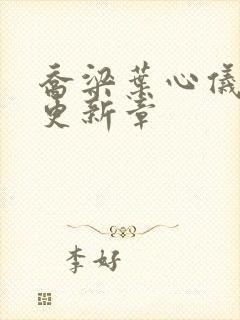 乔梁葉心儀
更新章
李好